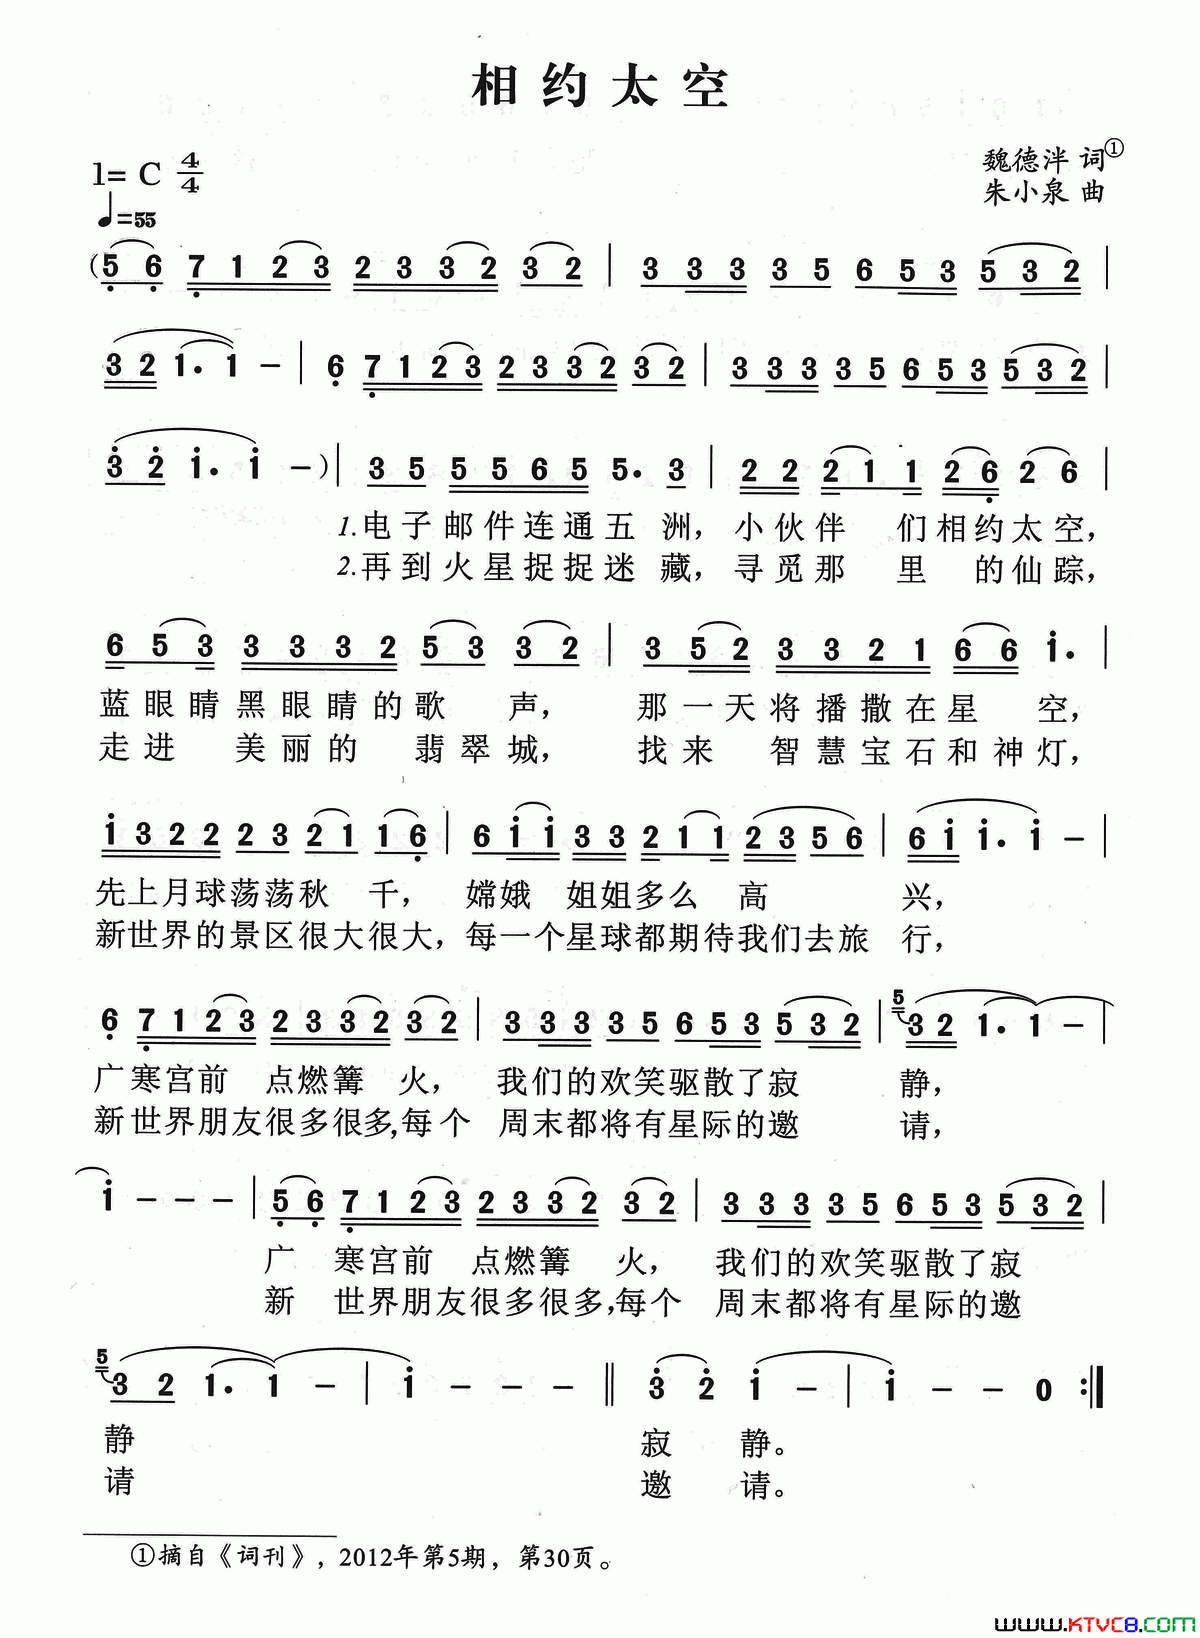 相约太空
1= C 4/4
魏德泮 词①
♩=55
朱小泉 曲
(5 6 7 1 2 3 2 3 3 2 3 2 | 3 3 3 3 5 6 5 3 5 3 2 |
3 2 1. 1 - | 6 7 1 2 3 2 3 3 2 3 2 | 3 3 3 3 5 6 5 3 5 3 2 |
3 2 1. 1 -) | 3 5 5 5 6 5 5. 3 | 2 2 2 1 1 2 6 2 6 |
1.电子邮件连通五 洲，小伙伴 们相约太空，
2.再到火星捉捉迷 藏，寻觅那 里 的仙踪，
6 5 3 3 3 3 2 5 3 3 2 | 3 5 2 3 3 2 1 6 6 1. |
蓝眼睛黑眼睛的歌 声， 那一天将播撒在星 空，
走进 美丽的 翡翠城， 找来 智慧宝石和神灯，
1 3 2 2 2 3 2 1 1 6 | 6 1 1 3 3 2 1 1 2 3 5 6 | 6 1 1. 1 - |
先上月球荡荡秋 千， 嫦娥 姐姐多么 高 兴，
新世界的景区很大很大，每一个星球都期待我们去旅 行，
6 7 1 2 3 2 3 3 2 3 2 | 3 3 3 3 5 6 5 3 5 3 2 | 5 3 2 1. 1 - |
广寒宫前 点燃篝 火， 我们的欢笑驱散了寂 静，
新世界朋友很多很多，每个 周末都将有星际的邀 请，
1 - - - | 5 6 7 1 2 3 2 3 3 2 3 2 | 3 3 3 3 5 6 5 3 5 3 2 |
广 寒宫前 点燃篝 火， 我们的欢笑驱散了寂
新 世界朋友很多很多，每个 周末都将有星际的邀
5 3 2 1. 1 - | 1 - - - || 3 2 1 - | 1 - - 0 :||
静 寂 静。
请 邀 请。
①摘自《词刊》，2012年第5期，第30页。
www.KTVC8.com